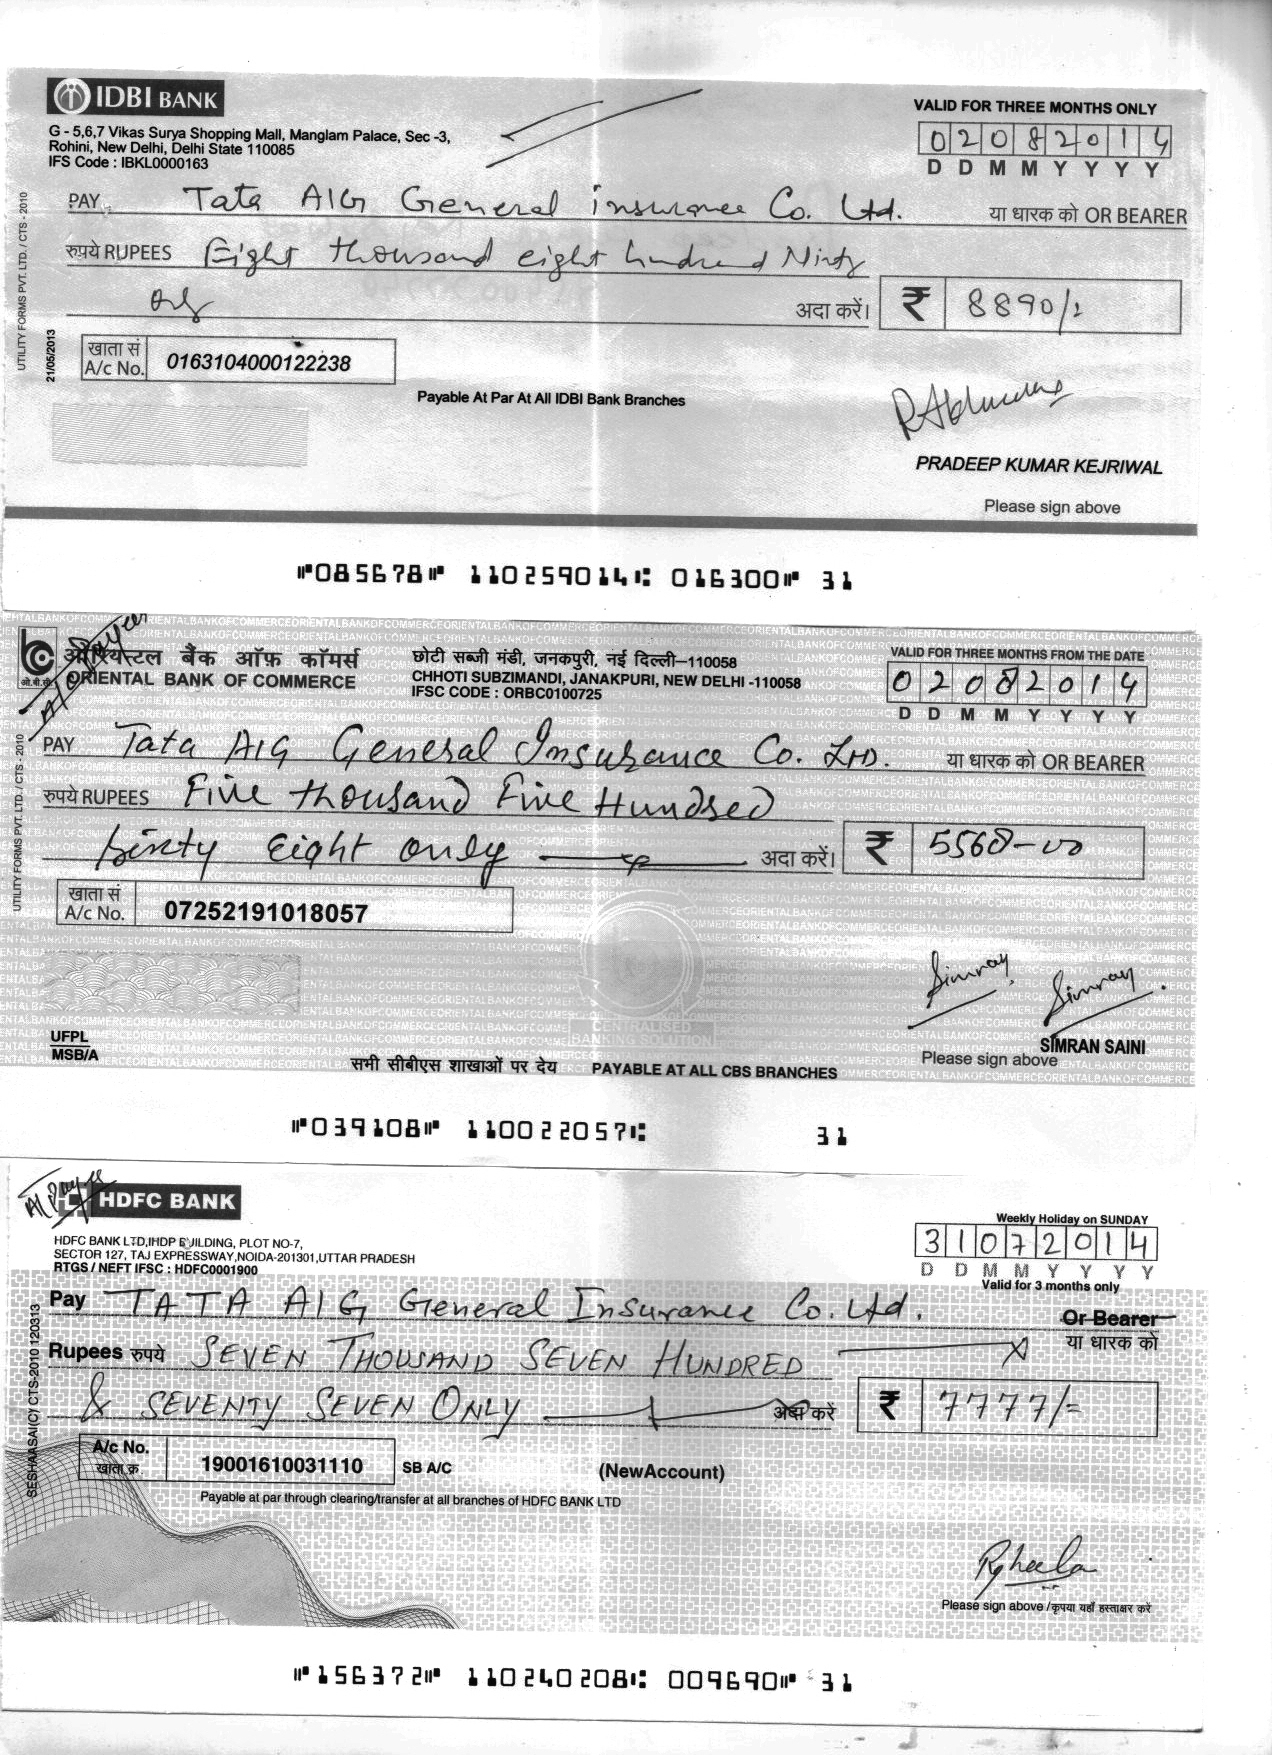 IDBI BANK
G - 5,6,7 Vikas Surya Shopping Mall, Manglam Palace, Sec -3,
Rohini, New Delhi, Delhi State 110085
IFS Code : IBKL0000163
VALID FOR THREE MONTHS ONLY
02082014
D D M M Y Y Y Y
PAY Tata AIG General insurance Co. Ltd. या धारक को OR BEARER
रुपये RUPEES Eight thousand eight hundred Ninty
only अदा करें। ₹ 8890/-
UTILITY FORMS PVT. LTD. / CTS - 2010
21/05/2013
खाता सं
A/c No. 0163104000122238
Payable At Par At All IDBI Bank Branches
PRADEEP KUMAR KEJRIWAL
Please sign above
⑈085678⑈ 110259014⑆ 016300⑈ 31
A/c Payee
ओरियन्टल बैंक ऑफ़ कॉमर्स
ORIENTAL BANK OF COMMERCE
ओ.बी.सी
छोटी सब्जी मंडी, जनकपुरी, नई दिल्ली–110058
CHHOTI SUBZIMANDI, JANAKPURI, NEW DELHI -110058
IFSC CODE : ORBC0100725
VALID FOR THREE MONTHS FROM THE DATE
02082014
D D M M Y Y Y Y
PAY Tata AIG General Insurance Co. LTD. या धारक को OR BEARER
रुपये RUPEES Five thousand Five Hundred
Sixty Eight only अदा करें। ₹ 5568-00
UTILITY FORMS PVT. LTD. / CTS - 2010
खाता सं
A/c No. 07252191018057
CENTRALISED
BANKING SOLUTION
Simran Simran
UFPL
MSB/A
SIMRAN SAINI
Please sign above
सभी सीबीएस शाखाओं पर देय PAYABLE AT ALL CBS BRANCHES
⑈039108⑈ 110022057⑆ 31
A/c Payee
HDFC BANK
HDFC BANK LTD,IHDP BUILDING, PLOT NO-7,
SECTOR 127, TAJ EXPRESSWAY,NOIDA-201301,UTTAR PRADESH
RTGS / NEFT IFSC : HDFC0001900
Weekly Holiday on SUNDAY
31072014
D D M M Y Y Y Y
Valid for 3 months only
Pay TATA AIG General Insurance Co. Ltd. Or Bearer
या धारक को
Rupees रुपये SEVEN THOUSAND SEVEN HUNDRED
& SEVENTY SEVEN ONLY अदा करें ₹ 7777/=
SESHAASAI(C) CTS-2010 120313
A/c No.
खाता क्र. 19001610031110 SB A/C (NewAccount)
Payable at par through clearing/transfer at all branches of HDFC BANK LTD
Please sign above /कृपया यहाँ हस्ताक्षर करें
⑈156372⑈ 110240208⑆ 009690⑈ 31